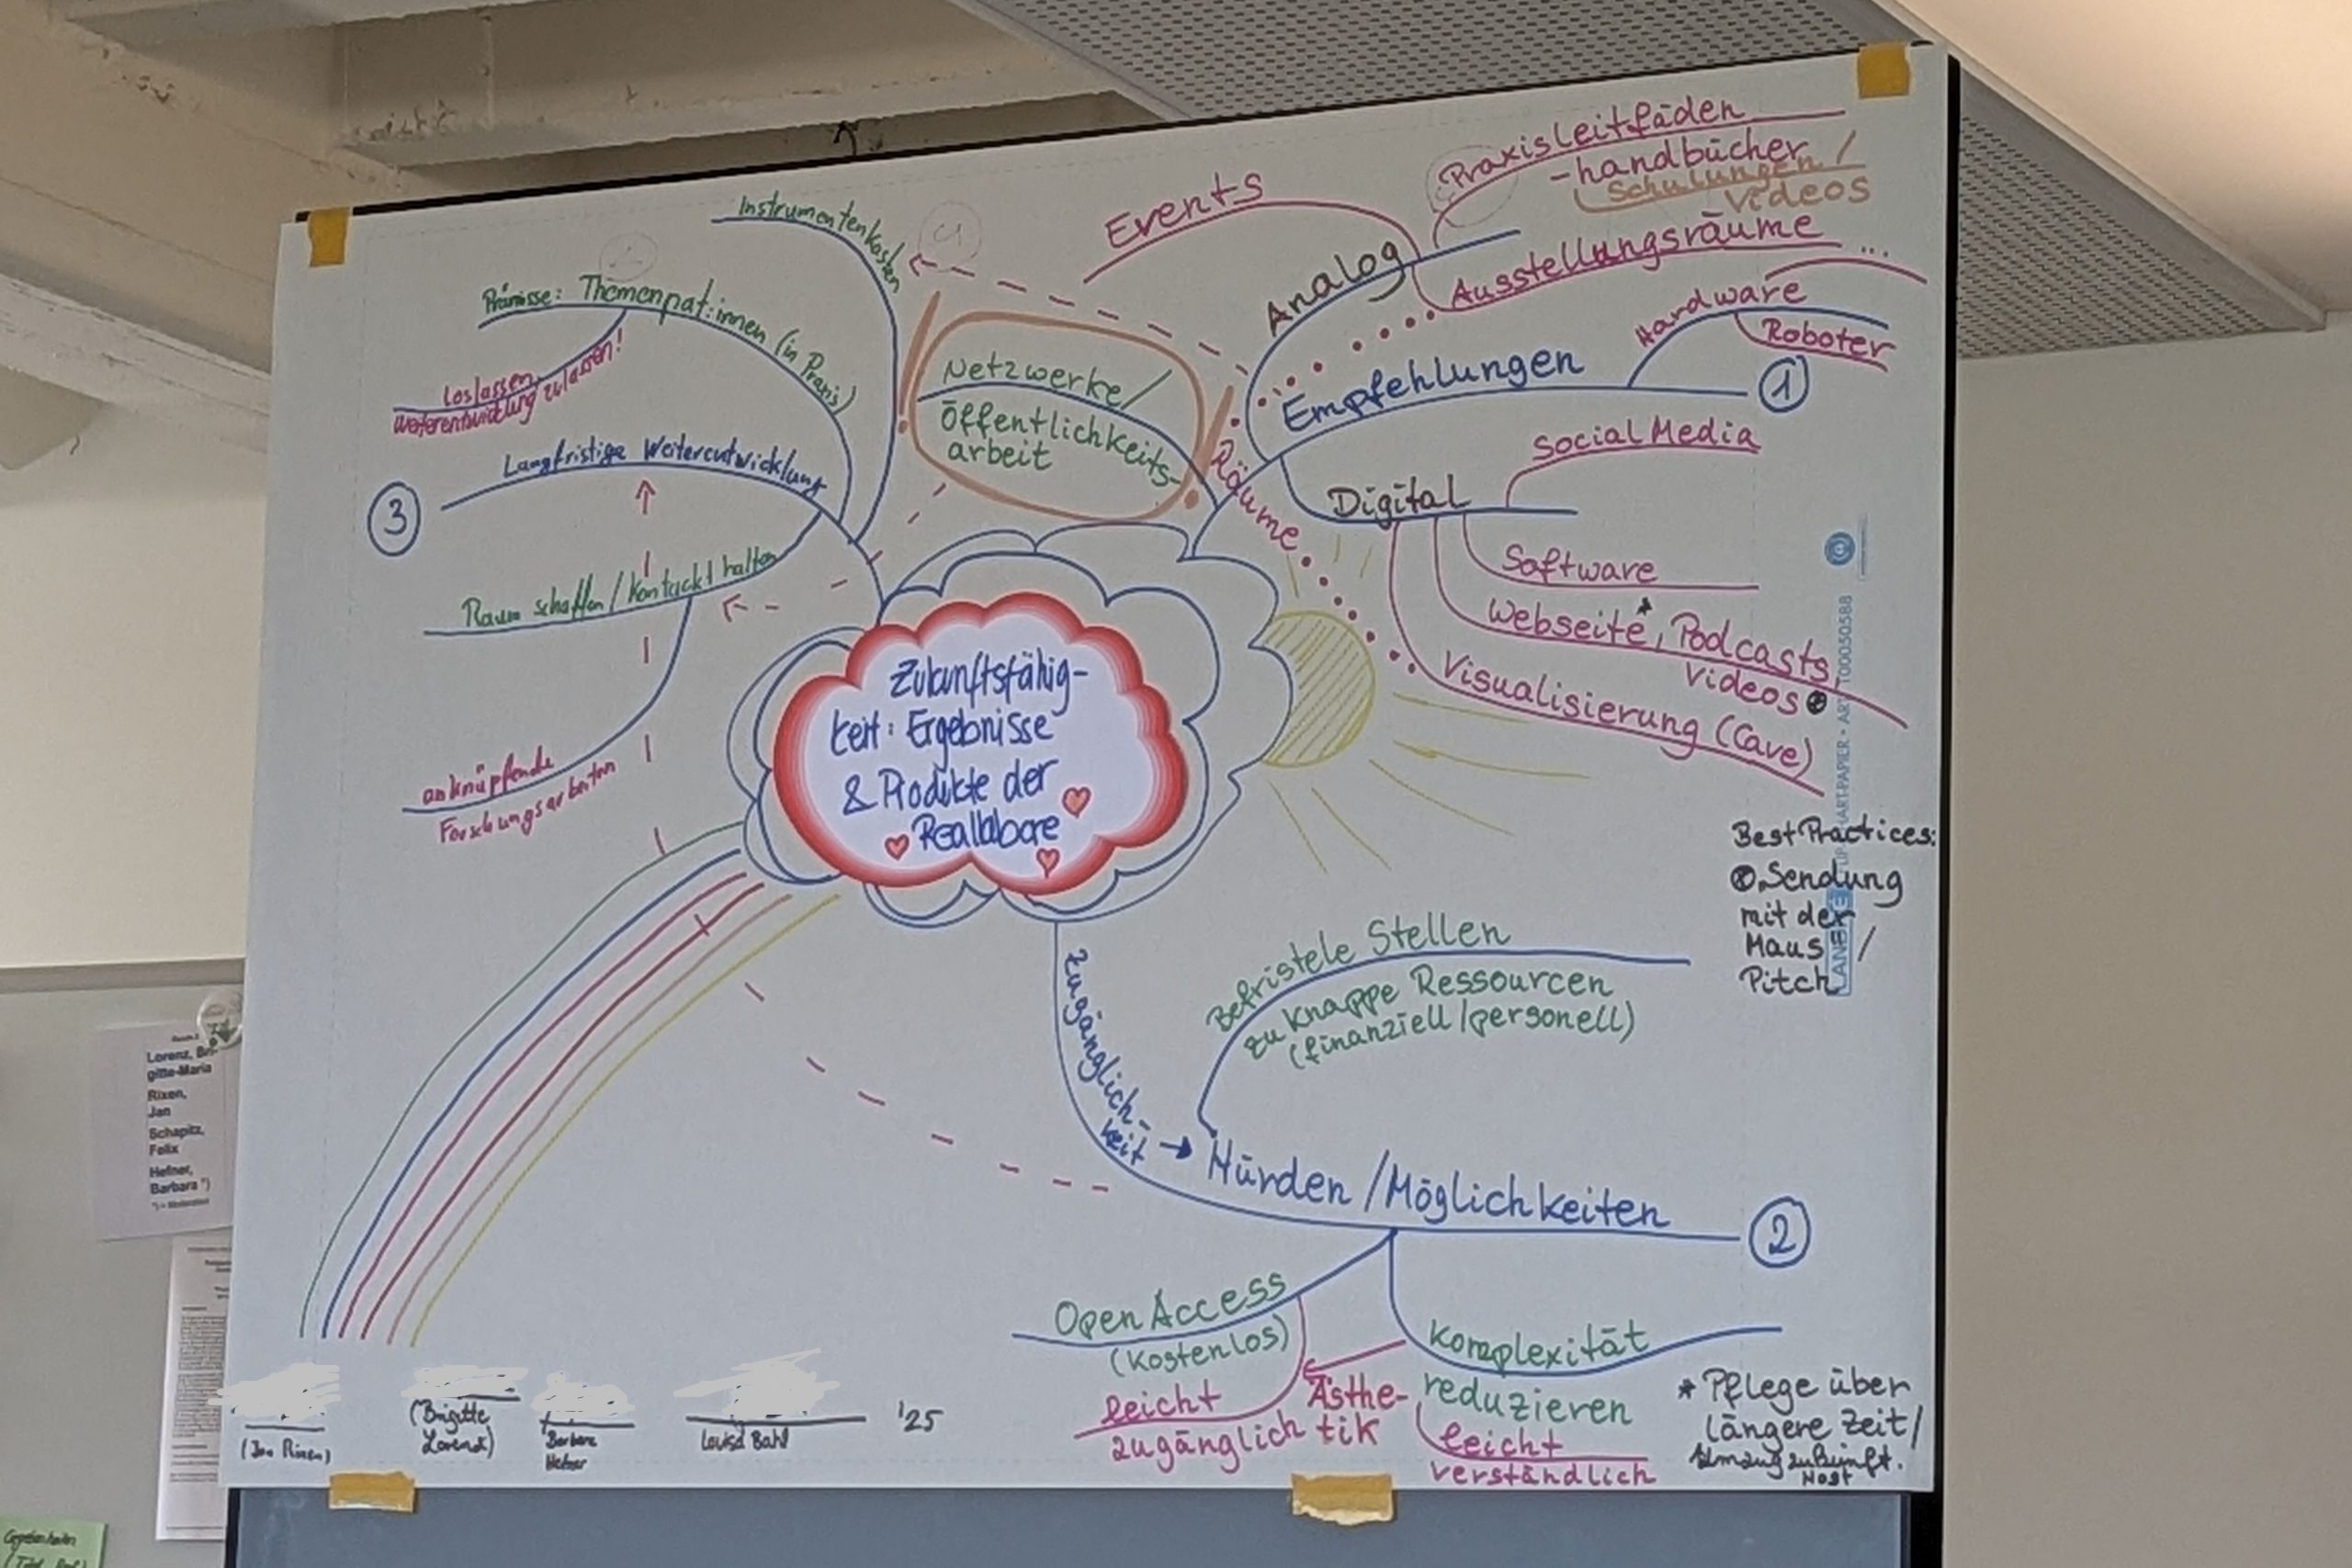 Instrumentenkosten
Prämisse: Themenpat:innen (in Praxis)
Loslassen,
Weiterentwicklung zulassen!
Langfristige Weiterentwicklung
3
Raum schaffen / Kontackt halten
anknüpfende
Forschungsarbeiten
Netzwerke/
Öffentlichkeits-
arbeit
Events
Analog
Praxisleitfäden
-handbücher
Schulungen /
Videos
Ausstellungsräume
...
Empfehlungen
1
Hardware
Roboter
Räume
Digital
Social Media
Software
Webseite*, Podcasts,
Videos
Visualisierung (Cave)
Zukunftsfähig-
keit: Ergebnisse
& Produkte der
Reallabore
Best Practices:
Sendung
mit der
Maus /
Pitch
Zugänglich-
keit
→ Hürden / Möglichkeiten
2
Befristele Stellen
zu knappe Ressourcen
(finanziell / personell)
Open Access
(kostenlos)
leicht
zugänglich
Ästhe-
tik
Komplexität
reduzieren
leicht
verständlich
* Pflege über
längere Zeit/
zukünft.
Host
(Jan Rixen)
(Brigitte
Lorenz)
Barbara
Hefner
Louisa Bahl
'25
Lorenz, Bri-
gitte-Maria
Rixen,
Jan
Schapitz,
Felix
Hefner,
Barbara *)